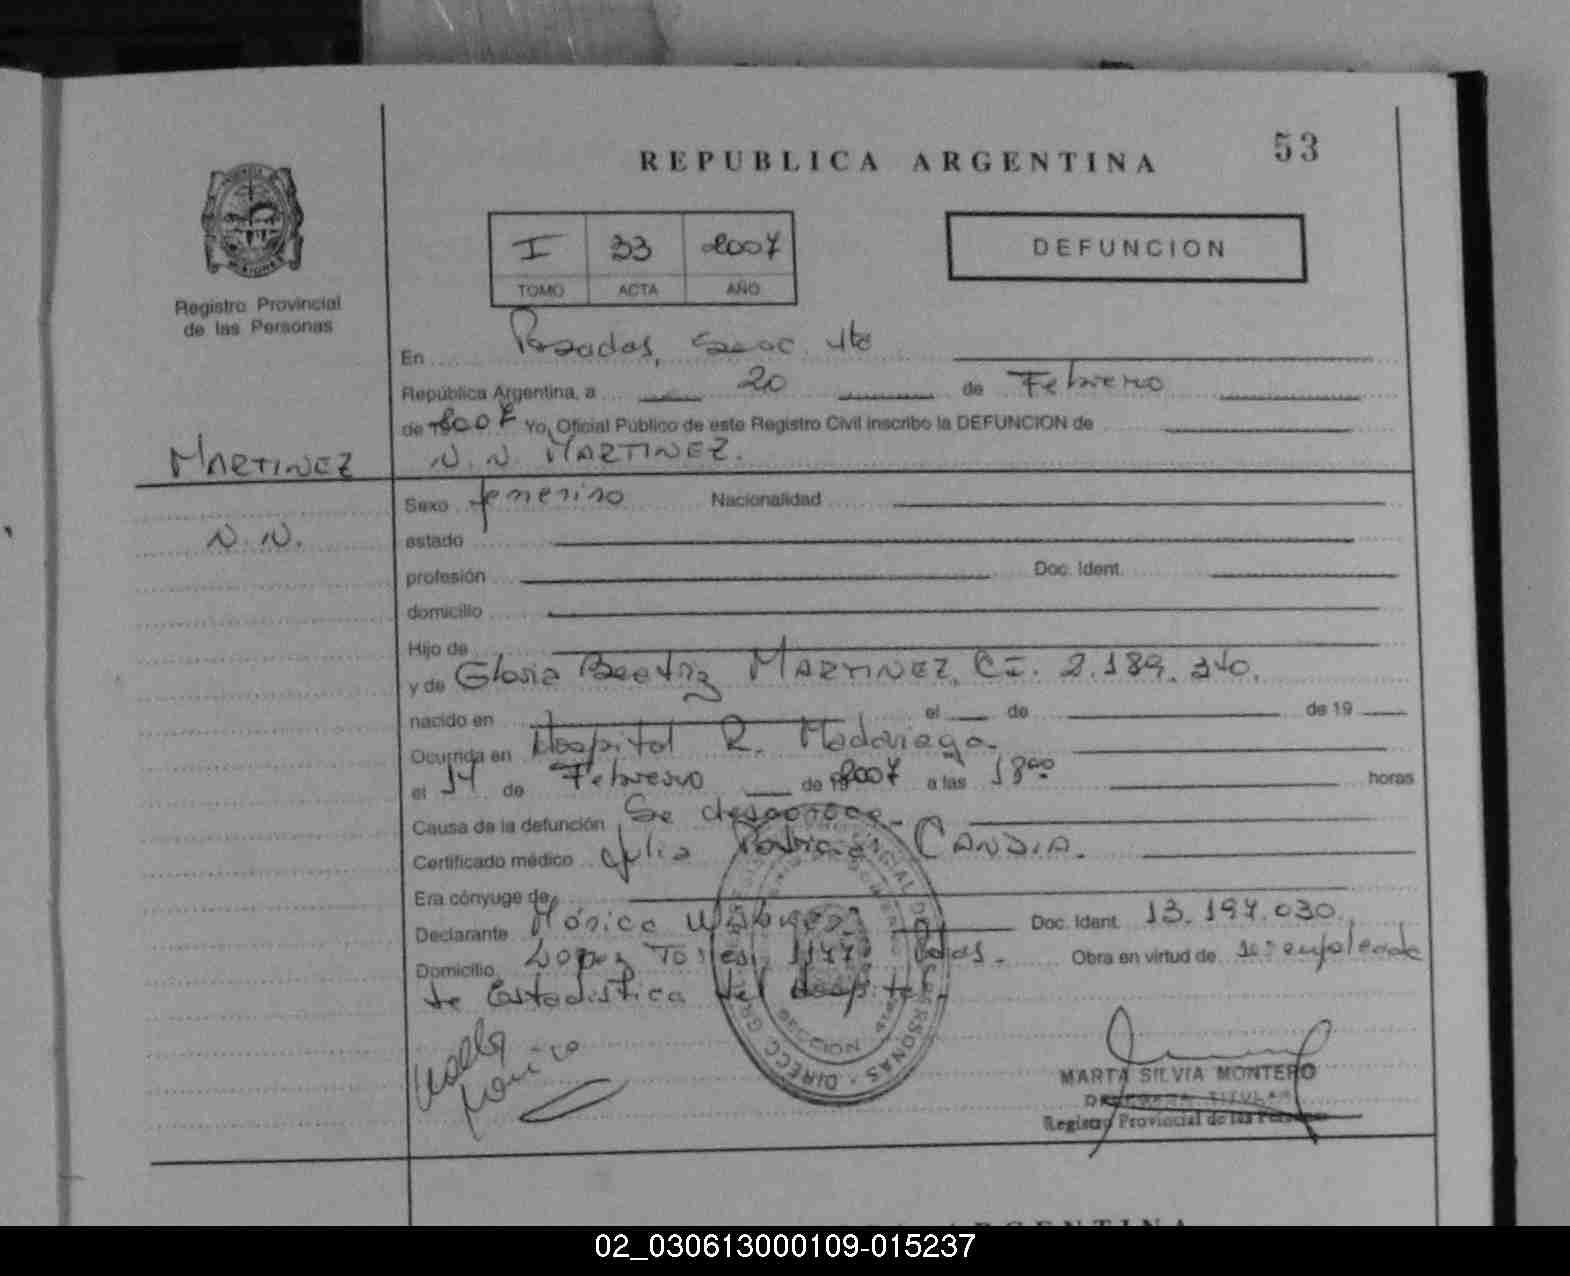 53
REPUBLICA ARGENTINA
I 33 2007
TOMO ACTA AÑO
DEFUNCION
Registro Provincial
de las Personas
En Posadas, 4to
República Argentina, a 20 de Febrero
de 2007 Yo, Oficial Público de este Registro Civil inscribo la DEFUNCION de
MARTINEZ
N. N. MARTINEZ.
N. N.
Sexo femenino Nacionalidad
estado
profesión Doc. Ident.
domicilio
Hijo de
y de Gloria Beatriz MARTINEZ, CI. 2.189.340.
nacido en el de de 19
Ocurrida en Hospital R. Madariaga.
el 14 de Febrero de 2007 a las 18 00 horas
Causa de la defunción Se desconoce.
Certificado médico Julia Patricia CANDIA.
Era cónyuge de
Declarante Mónica Doc. Ident. 13.197.030.
Domicilio Lopez Torres 1177 Pdas. Obra en virtud de ser empleada
de Estadistica del Hospital.
MARTA SILVIA MONTERO
TITULAR
Registro Provincial de las Personas
ARGENTINA
02_030613000109-015237